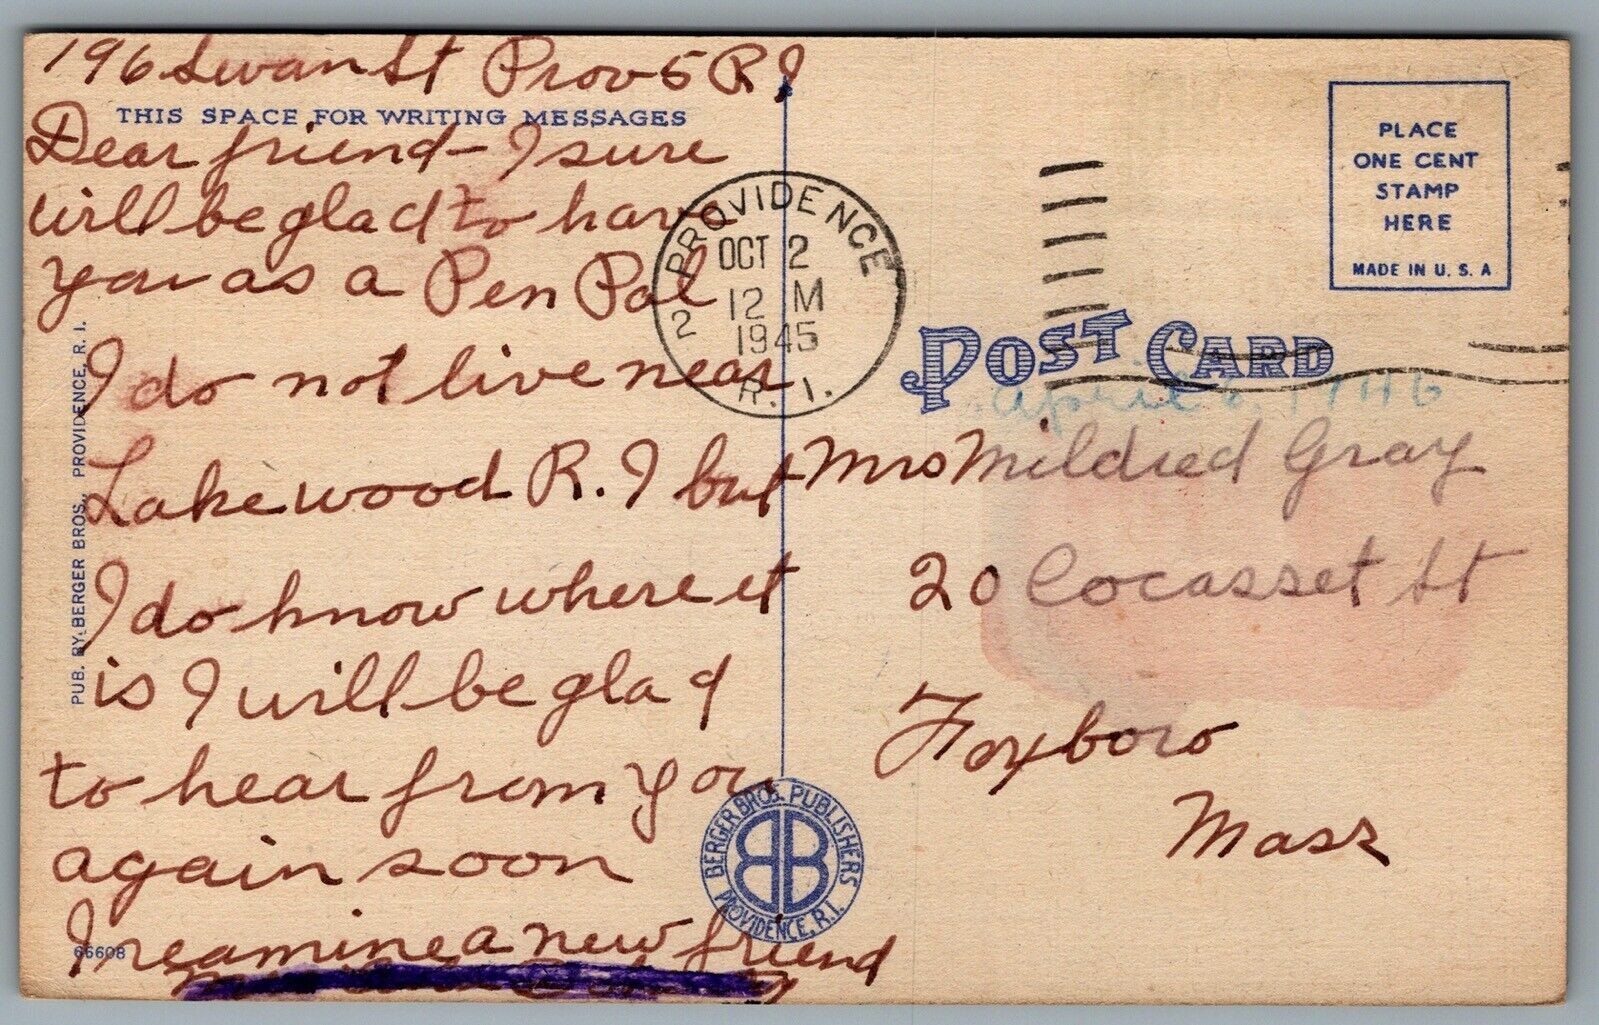 196 Swan St Prov 5 R I
THIS SPACE FOR WRITING MESSAGES
Dear friend - I sure
will be glad to have
you as a Pen Pal
I do not live near
Lakewood R. I but
I do know where it
is I will be glad
to hear from you
again soon
I reamine a new friend
66608
PUB. BY BERGER BROS., PROVIDENCE, R. I.
PROVIDENCE
OCT 2
12 M
1945
2
R. I.
PLACE
ONE CENT
STAMP
HERE
MADE IN U. S. A
POST CARD
April 1946
Mrs Mildred Gray
20 Cocasset St
Foxboro
Mass
BERGER BROS. PUBLISHERS
BB
PROVIDENCE, R. I.